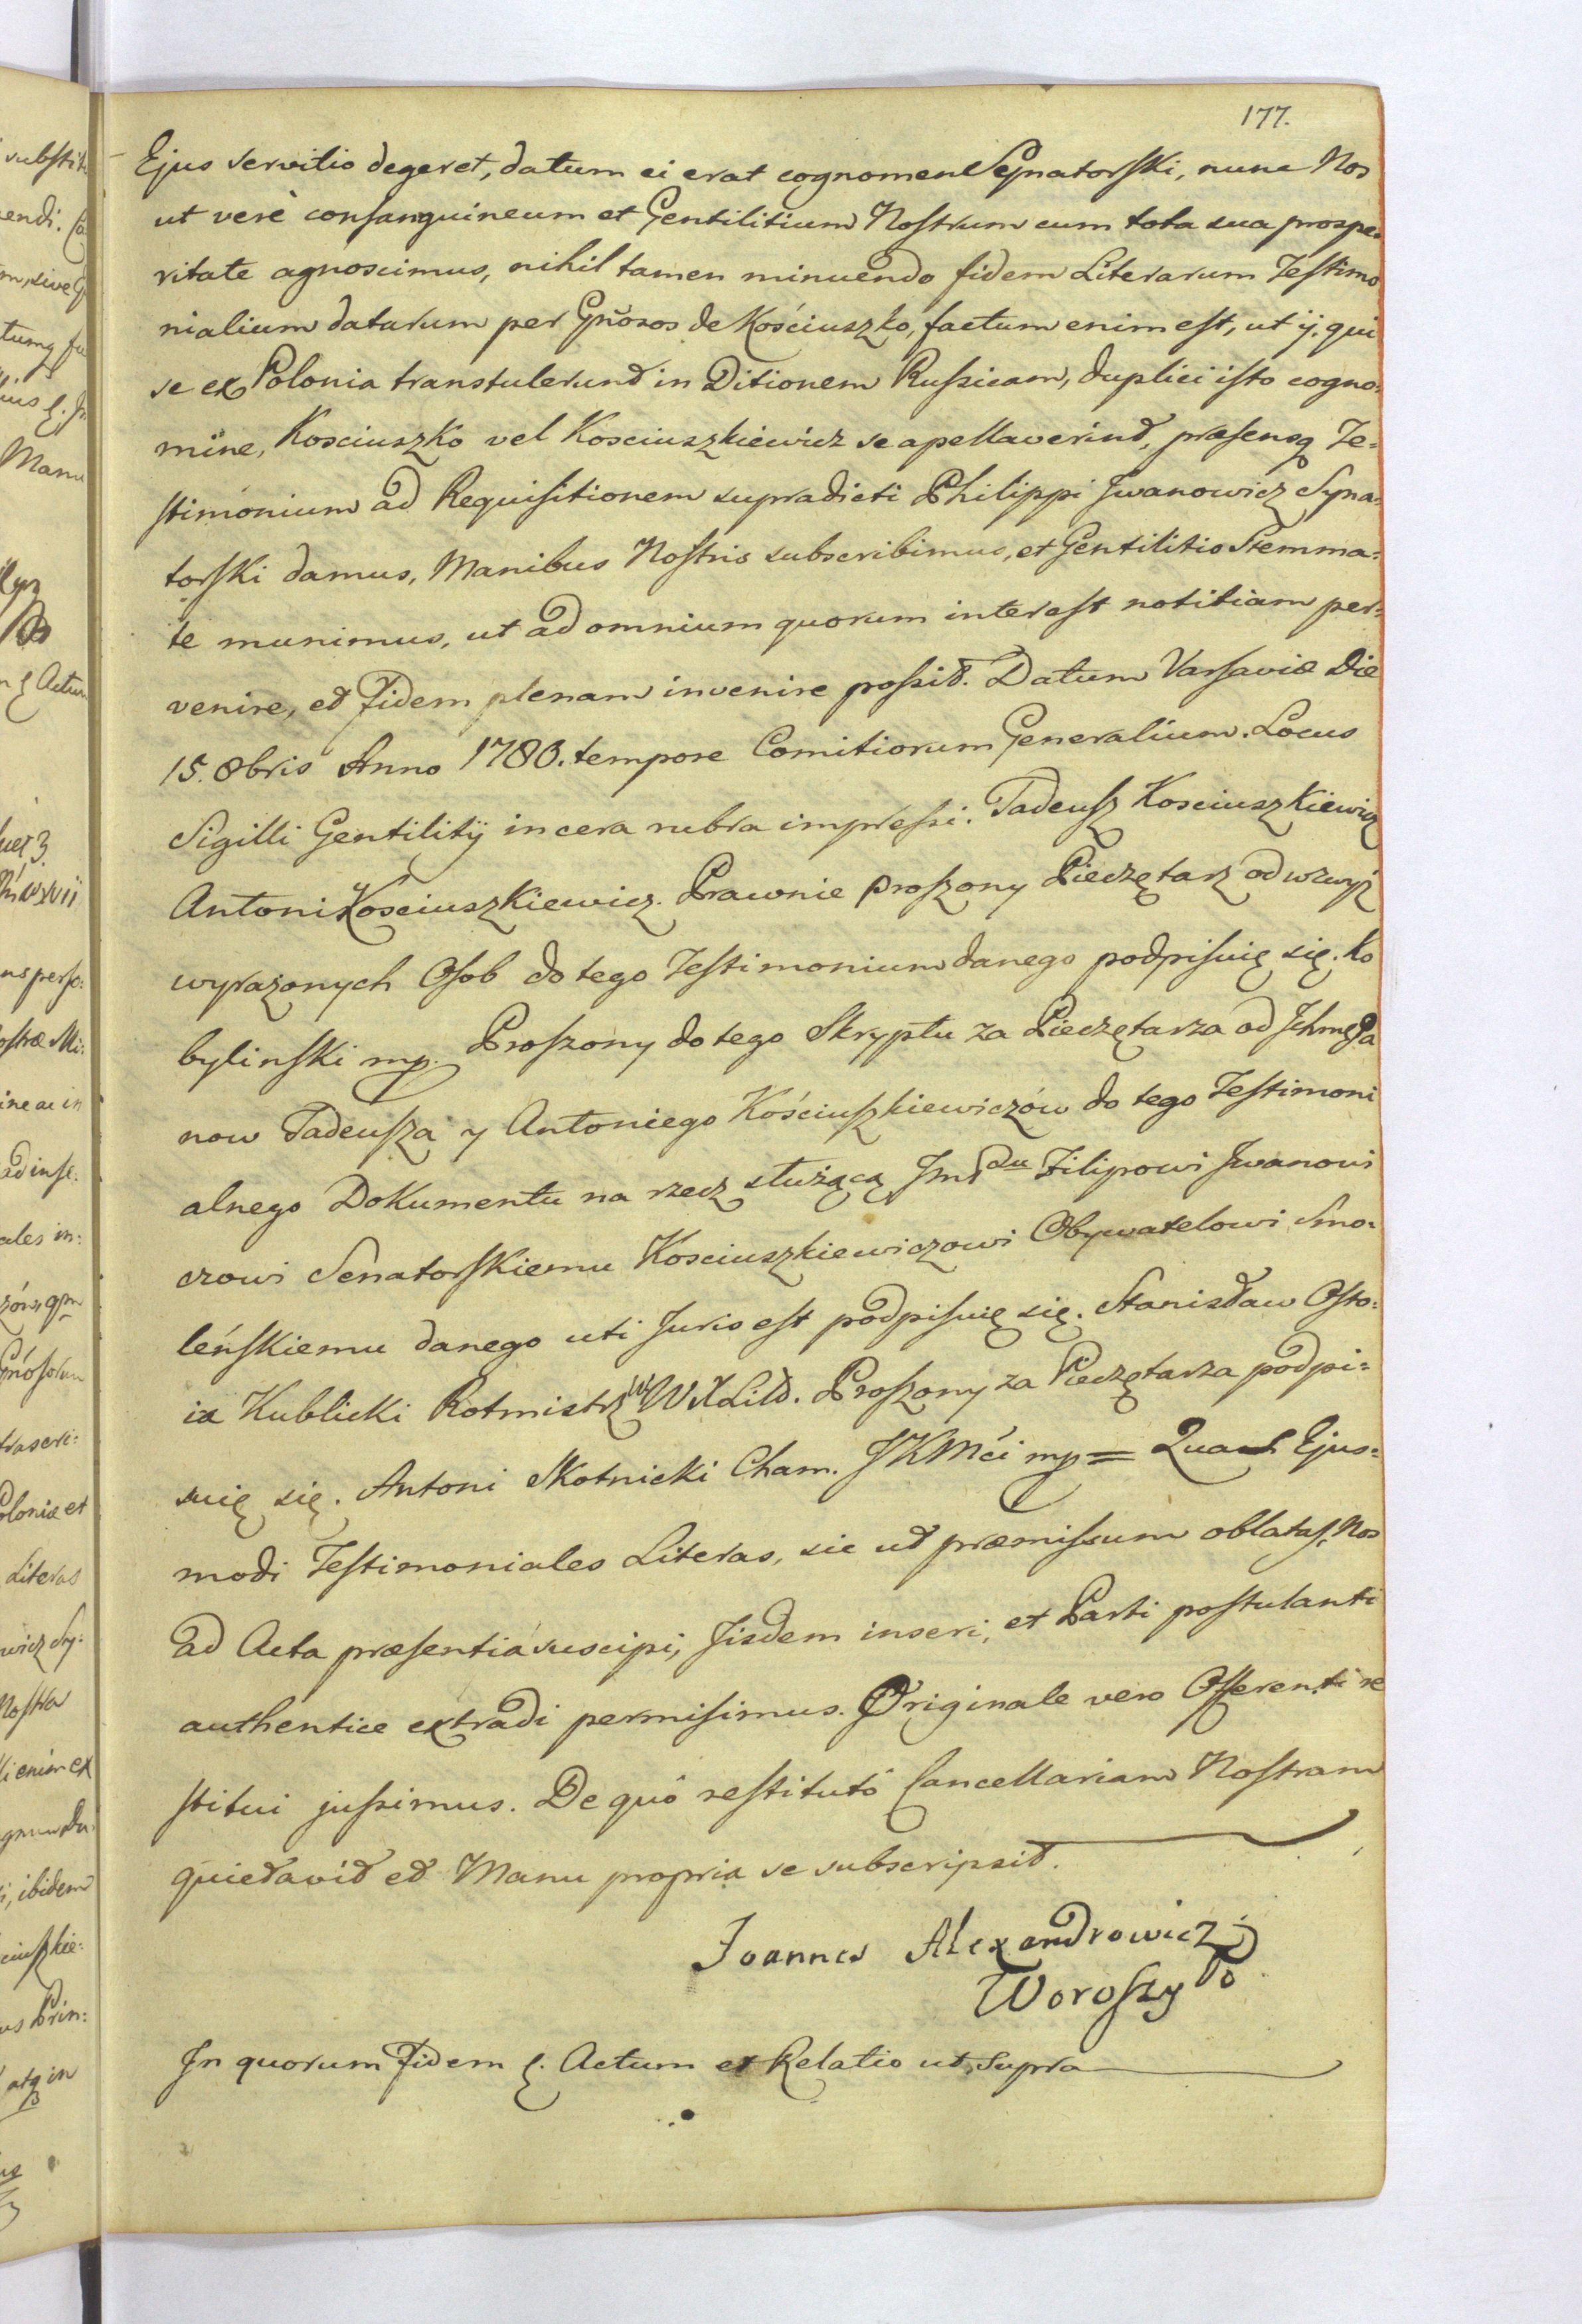 177.
Ejus servitio degeret, datum ei erat cognomen Synatorski, nunc Nos
ut verè consanguineum et Gentilitium Nostrum cum tota sua prospe=
ritate agnoscimus, nihil tamen minuendo fidem Literarum Testimo
nialium datarum per Gnõsos de Kościuszko, factum enim est, ut ij. qui
se ex Polonia transtulerunt in Ditionem Russicam, duplici isto cogno=
mine, Kosciuszko vel Kosciuszkiewicz se apellaverint, præsensq Te=
stimonium ad Requisitionem supradicti Philippi Jwanowicz Syna=
torski damus, Manibus Nostris subscribimus, et Gentilitio Stemma=
te munimus, ut ad omnium quorum interest notitiam per=
venire, et Fidem plenam invenire possit. Datum Varsaviæ Die
15. 8bris Anno 1780. tempore Comitiorum Generalium. Locus
Sigilli Gentilitij in cera rubra impressi. Tadeusz Kosciuszkiewicz
Antoni Kosciuszkiewicz. Prawnie proszony Pieczętarz od wzwyż
wyrażonych Osob do tego Testimonium danego podpisuię się. Ko
bylinski mp. Proszony do tego Skryptu za Pieczętarza od Ichmć Pa
now Tadeusza y Antoniego Kościuszkiewiczów do tego Testimoni
alnego Dokumentu na rzecz służącą JmPdu Filipowi Jwanowi
czowi Senatorskiemu Kosciuszkiewiczowi Obywatelowi Smo=
leńskiemu danego uti Juris est podpisuię się. Stanisław Osto=
ia Kublicki Rotmistrz W W X Litt. Proszony za Pieczętarza podpi=
suię się. Antoni Skotnicki Cham. JKMći mp = Quas Ejus=
modi Testimoniales Literas, sic ut præmissum oblatas, Nos
ad Acta præsentia suscipi, Jisdem inseri, et Parti postulanti
authentice extradi permisimus. Originale vero Offerenti re
stitui jussimus. De quô restitutô Cancellariam Nostram
quietavit et Manu propria se subscripsit.
Joannes Alexandrowicz
Woroszyło
Jn quorum Fidem &. Actum et Relatio ut supra